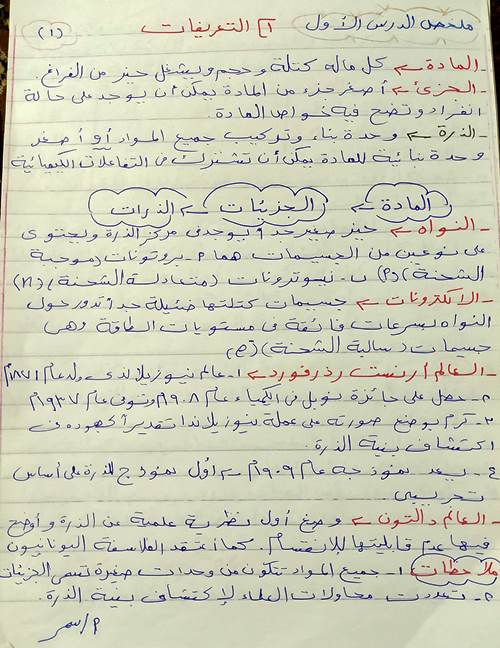 ملخص الدرس الأول ١] التعريفات (١)
- المادة ← كل ماله كتلة وحجم ويشغل حيز من الفراغ.
- الجزئ ← أصغر جزء من المادة يمكن أن يوجد على حالة
انفراد وتضح فيه خواص المادة.
- الذرة ← وحدة بناء وتركيب جميع المواد أو أصغر
وحدة بنائية للمادة يمكن أن تشترك فى التفاعلات الكيميائية
المادة ← الجزيئات ← الذرات
- النواه ← حيز صغير جداً يوجد فى مركز الذرة ويحتوى
على نوعين من الجسيمات هما ٢- بروتونات (موجبة
الشحنة) (P) ب- نيوترونات (متعادلة الشحنة) (n)
- الالكترونات ← جسيمات كتلتها ضئيلة جداً تدور حول
النواه بسرعات فائقة فى مستويات الطاقة وهى
جسيمات (سالبة الشحنة) (e)
- العالم أرنست رذرفورد ← ١- عالم نيوزيلاندى ولد عام ١٨٧١م
٢- حصل على جائزة نوبل فى الكيمياء عام ١٩٠٨م وتوفى عام ١٩٣٧م
٣- كرم بوضع صورته على عملة نيوزيلاندا تقديراً لجهوده فى
اكتشاف بنية الذرة.
٤- يعد نموذجه عام ١٩٠٩م ← أول نموذج للذرة على أساس
تجريبى.
- العالم دالتون ← وضع أول نظرية علمية عن الذرة وأوضح
فيها عدم قابليتها للانقسام. كما أعتقد الفلاسفة اليونانيون
ملاحظات ١- جميع المواد تتكون من وحدات صغيرة تسمى الجزيئات
٢- تعددت محاولات العلماء لإكتشاف بنية الذرة.
٢/سمر